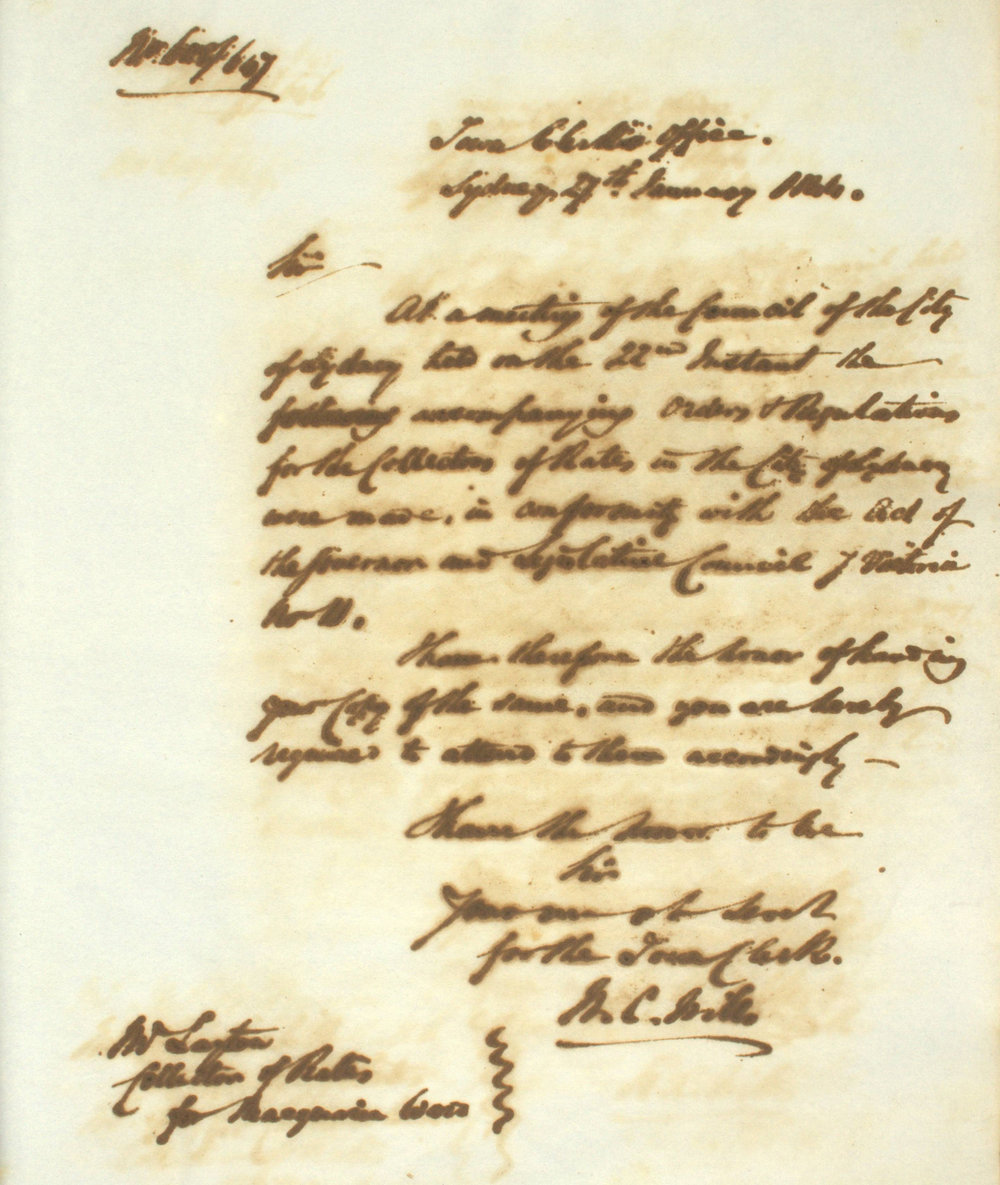 Town Clerk's Office.
Sydney, 27th January
Sir
At a meeting of the Council of the City
of Sydney held on the 22nd Instant the
following accompanying Orders & Regulations
for the Collectors of Rates in the City of Sydney
were made, in conformity with the Act of
the Governor and Legislative Council 7 Victoria
No
I have therefore the honor of handing
you Copy of the same, and you are hereby
required to attend to them accordingly —
I have the honor to be
Sir
Your ob Servt
for the Town Clerk.
W. C. Wills
Mr
Collector of Rates
for Macquarie Ward